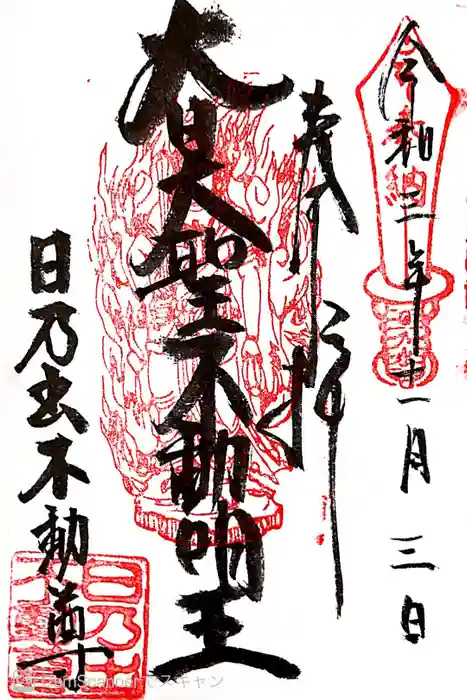 令和三年十一月三日
奉拝
大日大聖不動明王
日乃出不動尊
CamScannerでスキャン